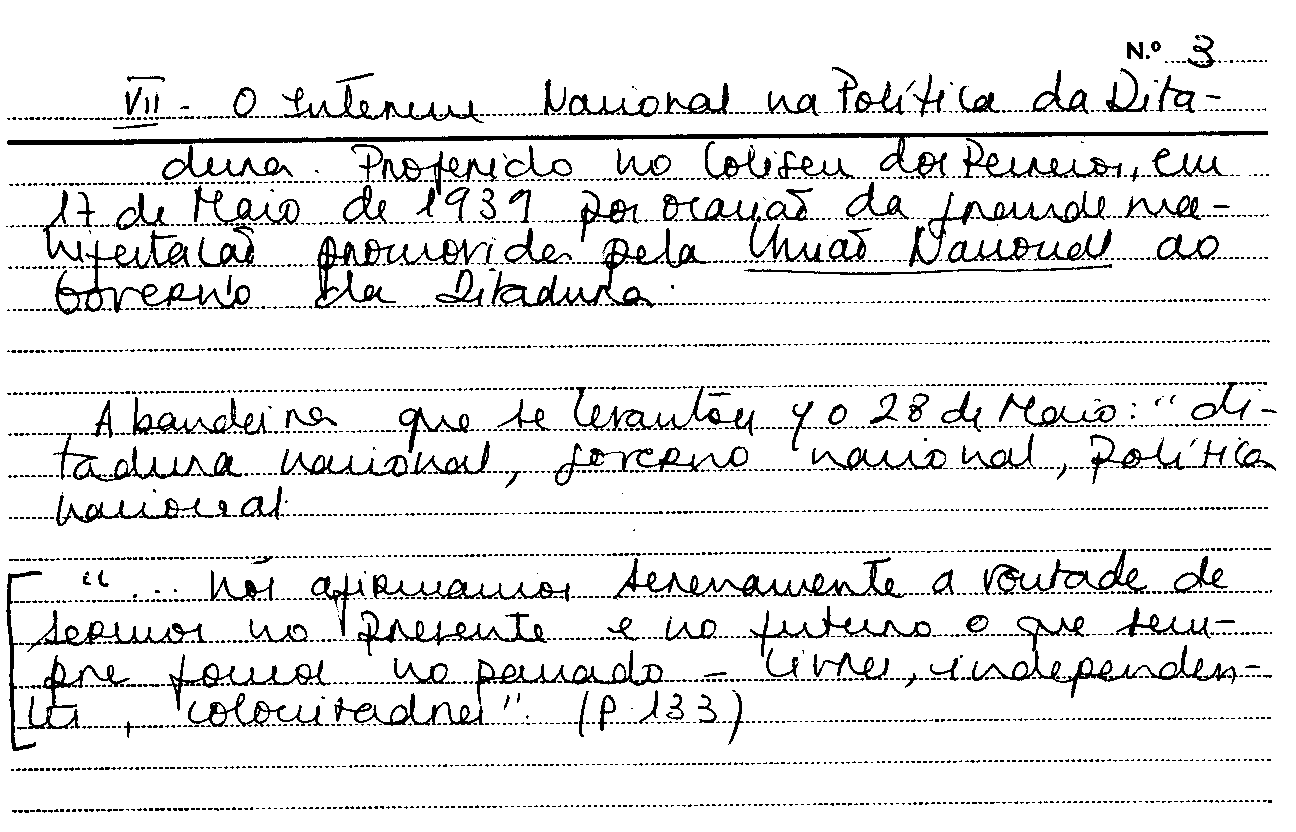 N.º 3
VII - O Interesse Nacional na Política da Dita-
dura. Proferido no Coliseu dos Recreios, em
17 de Maio de 1939 por ocasião da grande ma-
nifestação promovida pela União Nacional ao
Governo da Ditadura.
A bandeira que se levantou y o 28 de Maio: "di-
tadura nacional, governo nacional, política
nacional.
"... nós afirmamos serenamente a vontade de
sermos no presente e no futuro o que sem-
pre fomos no passado - livres, independen-
tes, colonizadores". (p. 133)